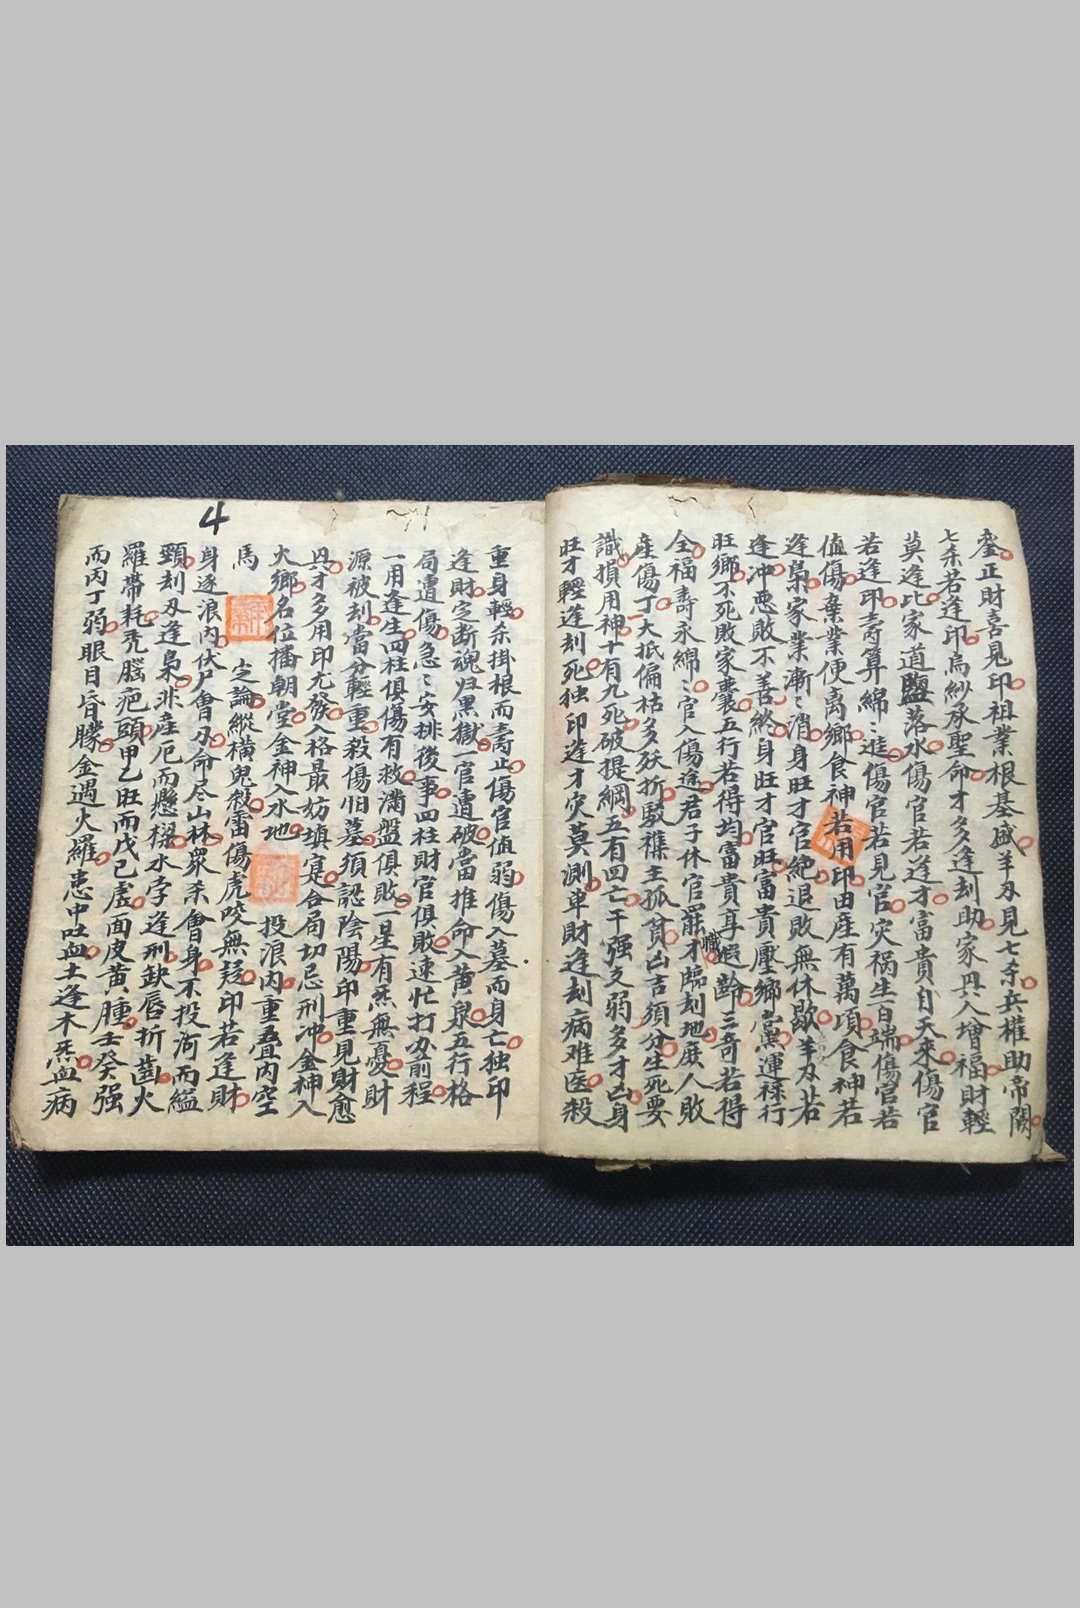 登正財喜見印祖業根基盛羊刃見七杀兵權助帝闕
七杀若逢印烏紗承聖命才多逢刦助家興人增福財輕
莫逢比家道盬落水傷官若逢才富貴自天來傷官
若逢印壽算綿〻進傷官若見官灾祸生百端傷官若
值傷棄業便離鄉食神若用印田産有萬項食神若
逢梟家業漸〻消身旺才官絶退敗無休歇羊刃若
逢冲悪敗不善終身旺才官旺富貴壓鄉黨運祿行
旺鄉不死敗家囊五行若得均富貴享遐齡三奇若得
全福壽永綿〻官入傷途君子休官罷才臨刦地庶人敗
産傷丁大抵偏枯多殀折駁襍主孤貧凶吉須分生死要
識損用神十有九死破提綱五有四亡干强支弱多才凶身
旺才輕逢刻死独印逢才灾莫測車財逢刻病难医殺
重身輕杀掛根而壽止傷官值弱傷入墓而身亡独印
逢財定断魂归黒嶽一官遭破當推命入黄泉五行格
局遭傷急〻安排後事四柱財官俱敗速忙打办前程
一用逢生四柱俱傷有救满盤俱敗一星有炁無憂財
源被刻當分輕重殺傷旧墓須認陰陽印重見財愈
興才多用印尤發入格最妨填寔合局切忌刑冲金神入
火鄉名位播朝堂金神入水地 投浪内重疊内空
馬 定論縱橫鬼殺雷傷虎咬無疑印若逢財
身逐浪内伏尸會刃命尽山林衆杀會身不投河而縊
頸刻刃逢梟非産厄而懸樑水孛逢刑缺唇折齒火
羅帶耗秃腦疤頭甲乙旺而戊己虚面皮黄腫壬癸强
而丙丁弱眼目昏矇金遇火羅患中吐血土逢木炁血病
4